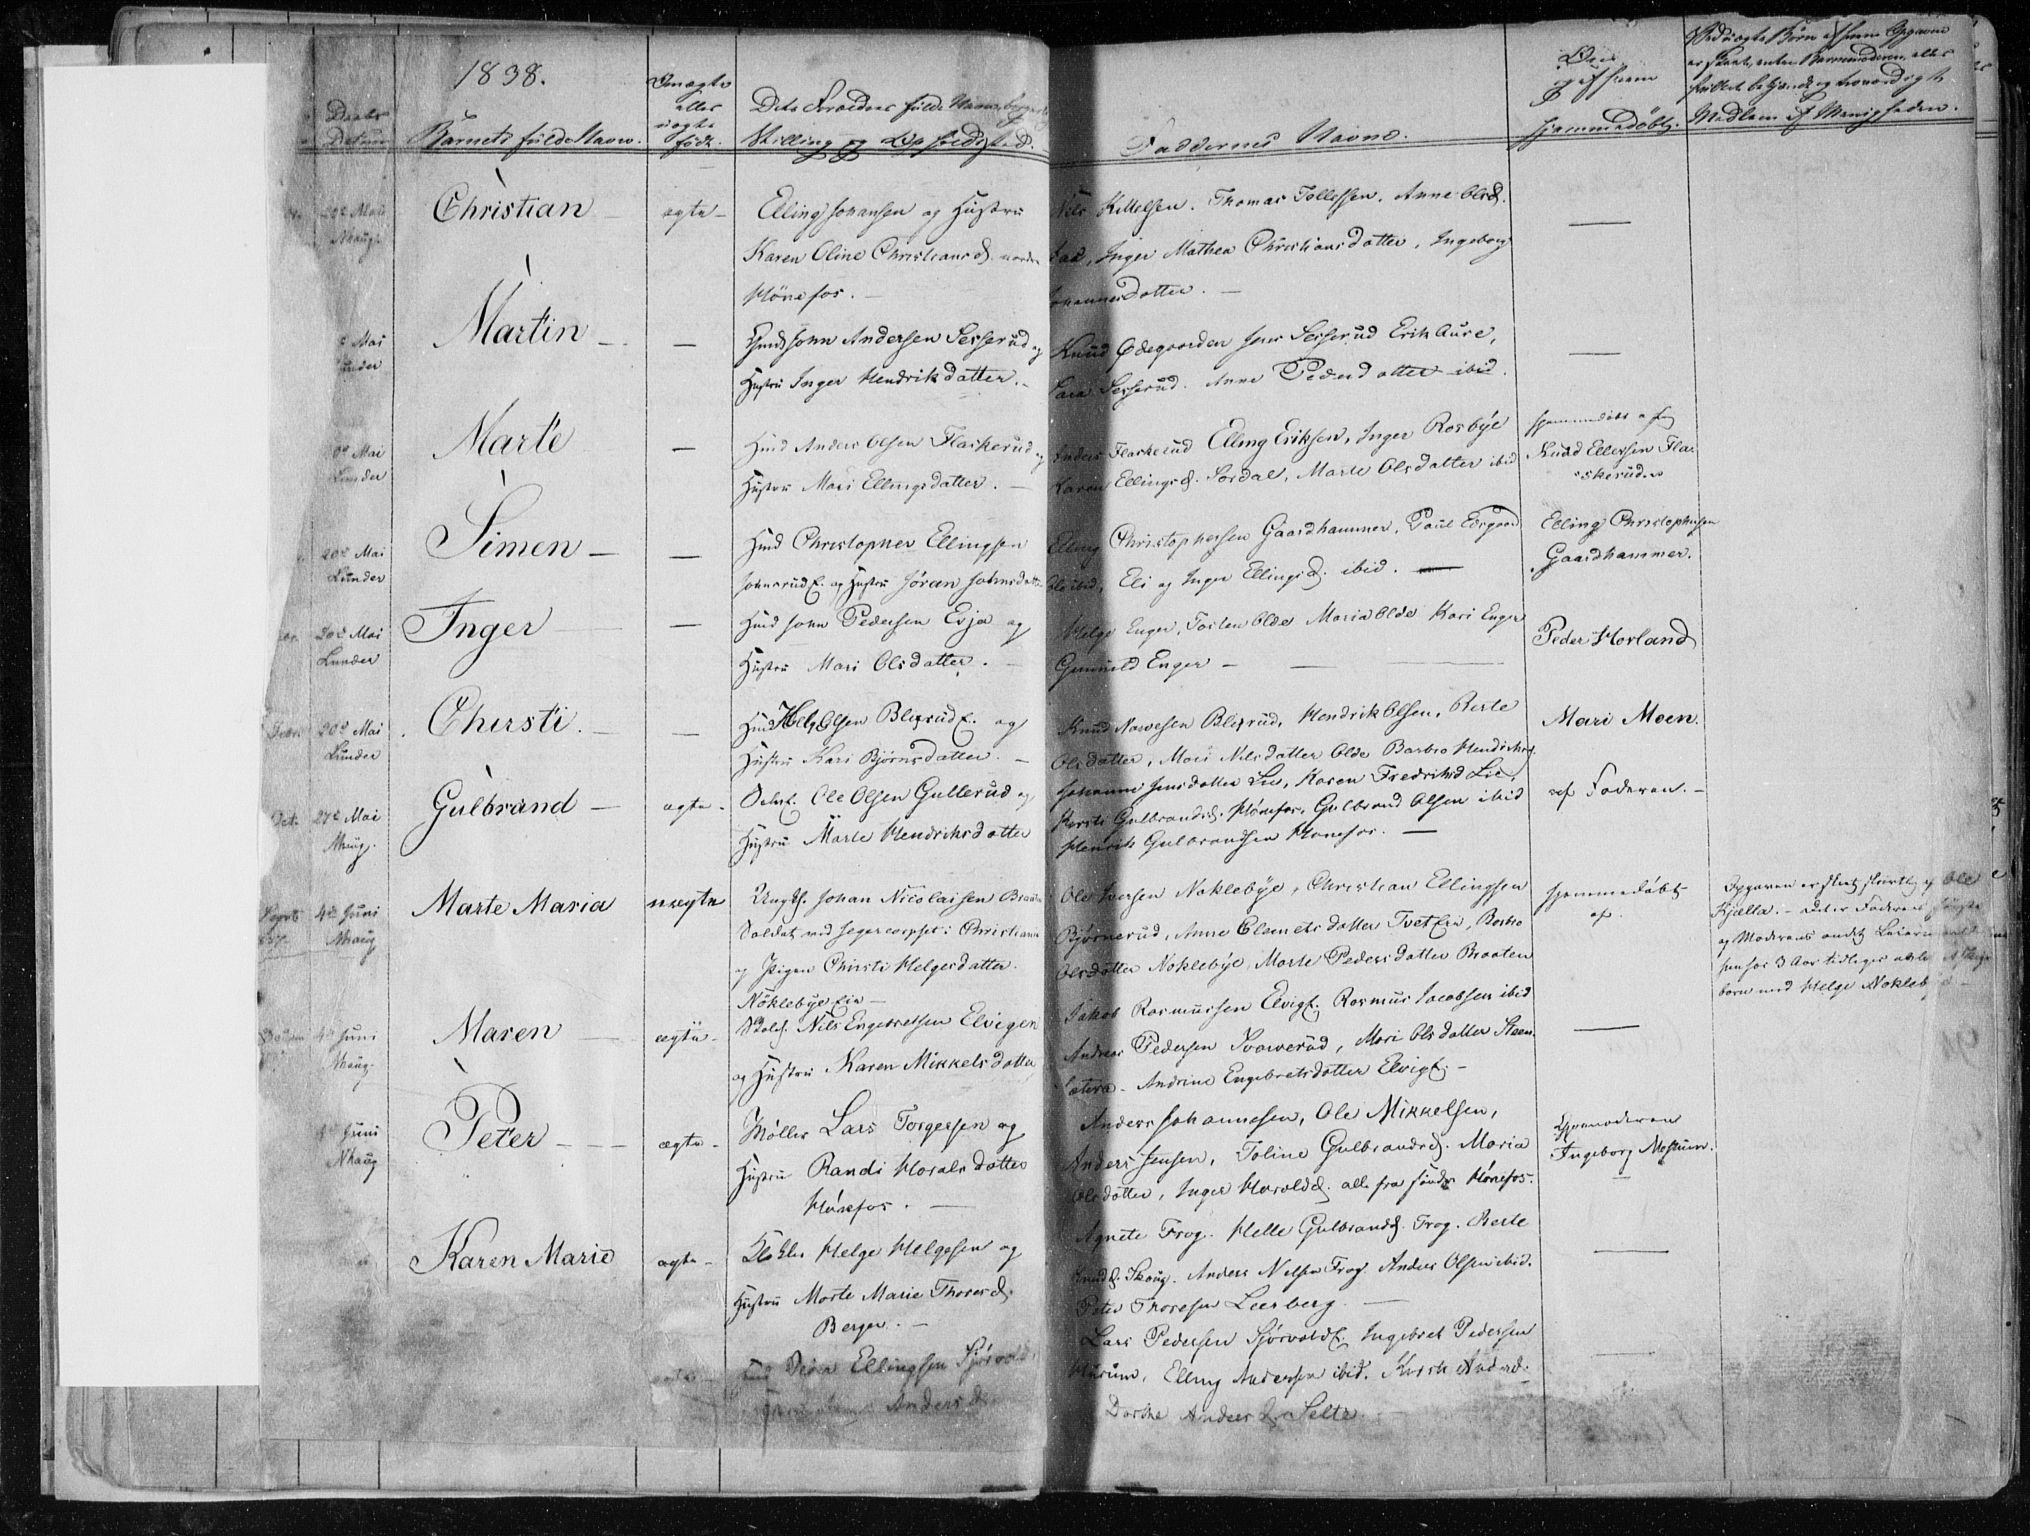 1838.
Daabs
Datum
Barnets fulde Navn.
eller
uægte
født.
Dets Forældres fulde Navn,
Stilling og Opholdssted.
Faddernes Navne.
hjemmedøbt.
Medlem af Menigheden.
20de Mai
Nhaug
Christian
ægte
Elling Johansen og Hustru
Karen Oline Christiansd. nordre
Hönefos.
Nils Kittelsen. Thomas Tollefsen. Anne Olsd.
Inger Mathea Christiansdatter, Ingeborg
Johannesdatter.
Mai
Lunder
Martin
John Andersen Sesserud og
Hustru Inger Hendriksdatter.
Knud Ødegaarden Jens Sesserud Erik Aure,
Sesserud. Anne Pedersdatter ibid.
Mai
Lunder
Marte
Huusd Anders Olsen Flaskerud og
Hustru Mari Ellingsdatter.
Anders Flaskerud Elling Eriksen, Inger Rosbye
Karen Ellingsd. Sørdal, Marte Olsdatter ibid
hjemmedøbt af
Knud Ellefsen Flas
skerud
20de Mai
Lunder
Simen
Christopher Ellingsen
Johnsrud E. og Hustru Jöran Johnsdatter
Elling Christophersen Gaardhammer, Paul
Ole ibid, Eli og Inger Ellingsd. ibid.
Elling Christophersen
Gaardhammer.
20de Mai
Lunder
Inger
John Pedersen Evja og
Hustru Mari Olsdatter.
Helge Enger, Torsten Olde Maria Olde Kari Enger
Gunnild Enger
Peder Horland
20de Mai
Lunder
Chirsti.
Helge Olsen Blixrud E. og
Hustru Kari Bjørnsdatter.
Knud Narvesen Blixrud, Hendrik Olsen, Berte
Olsdatter, Mari Nilsdatter Olde Barbro Hendriksd.
Mari Moen.
27de Mai
Nhaug.
Gulbrand
ægte
Ole Olsen Gullerud og
Hustru Marte Hendriksdatter
Johanne Jensdatter Lie, Karen Fredriksd Lie,
Kersti Gulbrandsd. Hönefos, Gulbrand Olsen ibid
Henrik Gulbrandsen Hönefos.
af Faderen.
4de Juni
Nhaug
Marte Maria
uægte
Ungk. Johan Nicolaisen
Soldat ved Jegercorpset i Christiania
og Pigen Chirsti Helgesdatter
Nöklebye Eie
Ole Iversen Noklebye, Christian Ellingsen
Bjørnerud, Anne Clemetsdatter Tvet Eie, Barbro
Olsdatter Noklebye, Marte Pedersdatter Braaten
hjemmedøbt
af
Opgaven er skeet skriftlig af Ole
Kjælla. Det er Faderens første
og Moderens andet Leiermaal
hun for 3 Aar tidligere avlet
barn med Helge Nokleby
4de Juni
Nhaug.
Maren
ægte
Nils Engebretsen Elvigen
og Hustru Karen Mikkelsdatter
Jakob Rasmussen Elvig E. Rasmus Jacobsen ibid
Andreas Pedersen Svarverud, Mari Olsdatter Steen
Sætera. Andrine Engebretsdatter Elvig E.
4de Juni
Nhaug
Peter
ægte
Møller Lars Torgersen og
Hustru Randi Haralsdatter
Hönefos.
Anders Johannesen, Ole Mikkelsen,
Anders Jensen, Toline Gulbrandsd. Maria
Olsdatter, Inger Haraldsd. alle fra söndre Hönefos.
Gjoremoderen
Ingeborg Mosum.
Karen Marie
ægte
Klokker Helge Helgesen og
Hustru Marte Marie Thoresd.
Berger.
Agnete Frog. Helle Gulbrandsd. Frog. Berte
Knudsd. Skaug. Anders Nilsen Frog. Anders Olsen ibid.
Peter Thoresen Leerberg.
ægte
Ellingsen Sjörvold
Andersd.
Lars Pedersen Sjørvold E. Ingebret Pedersen
Hurum, Elling Andersen ibid. Kirsti Andersd.
Dorthe Andersd. Selte.